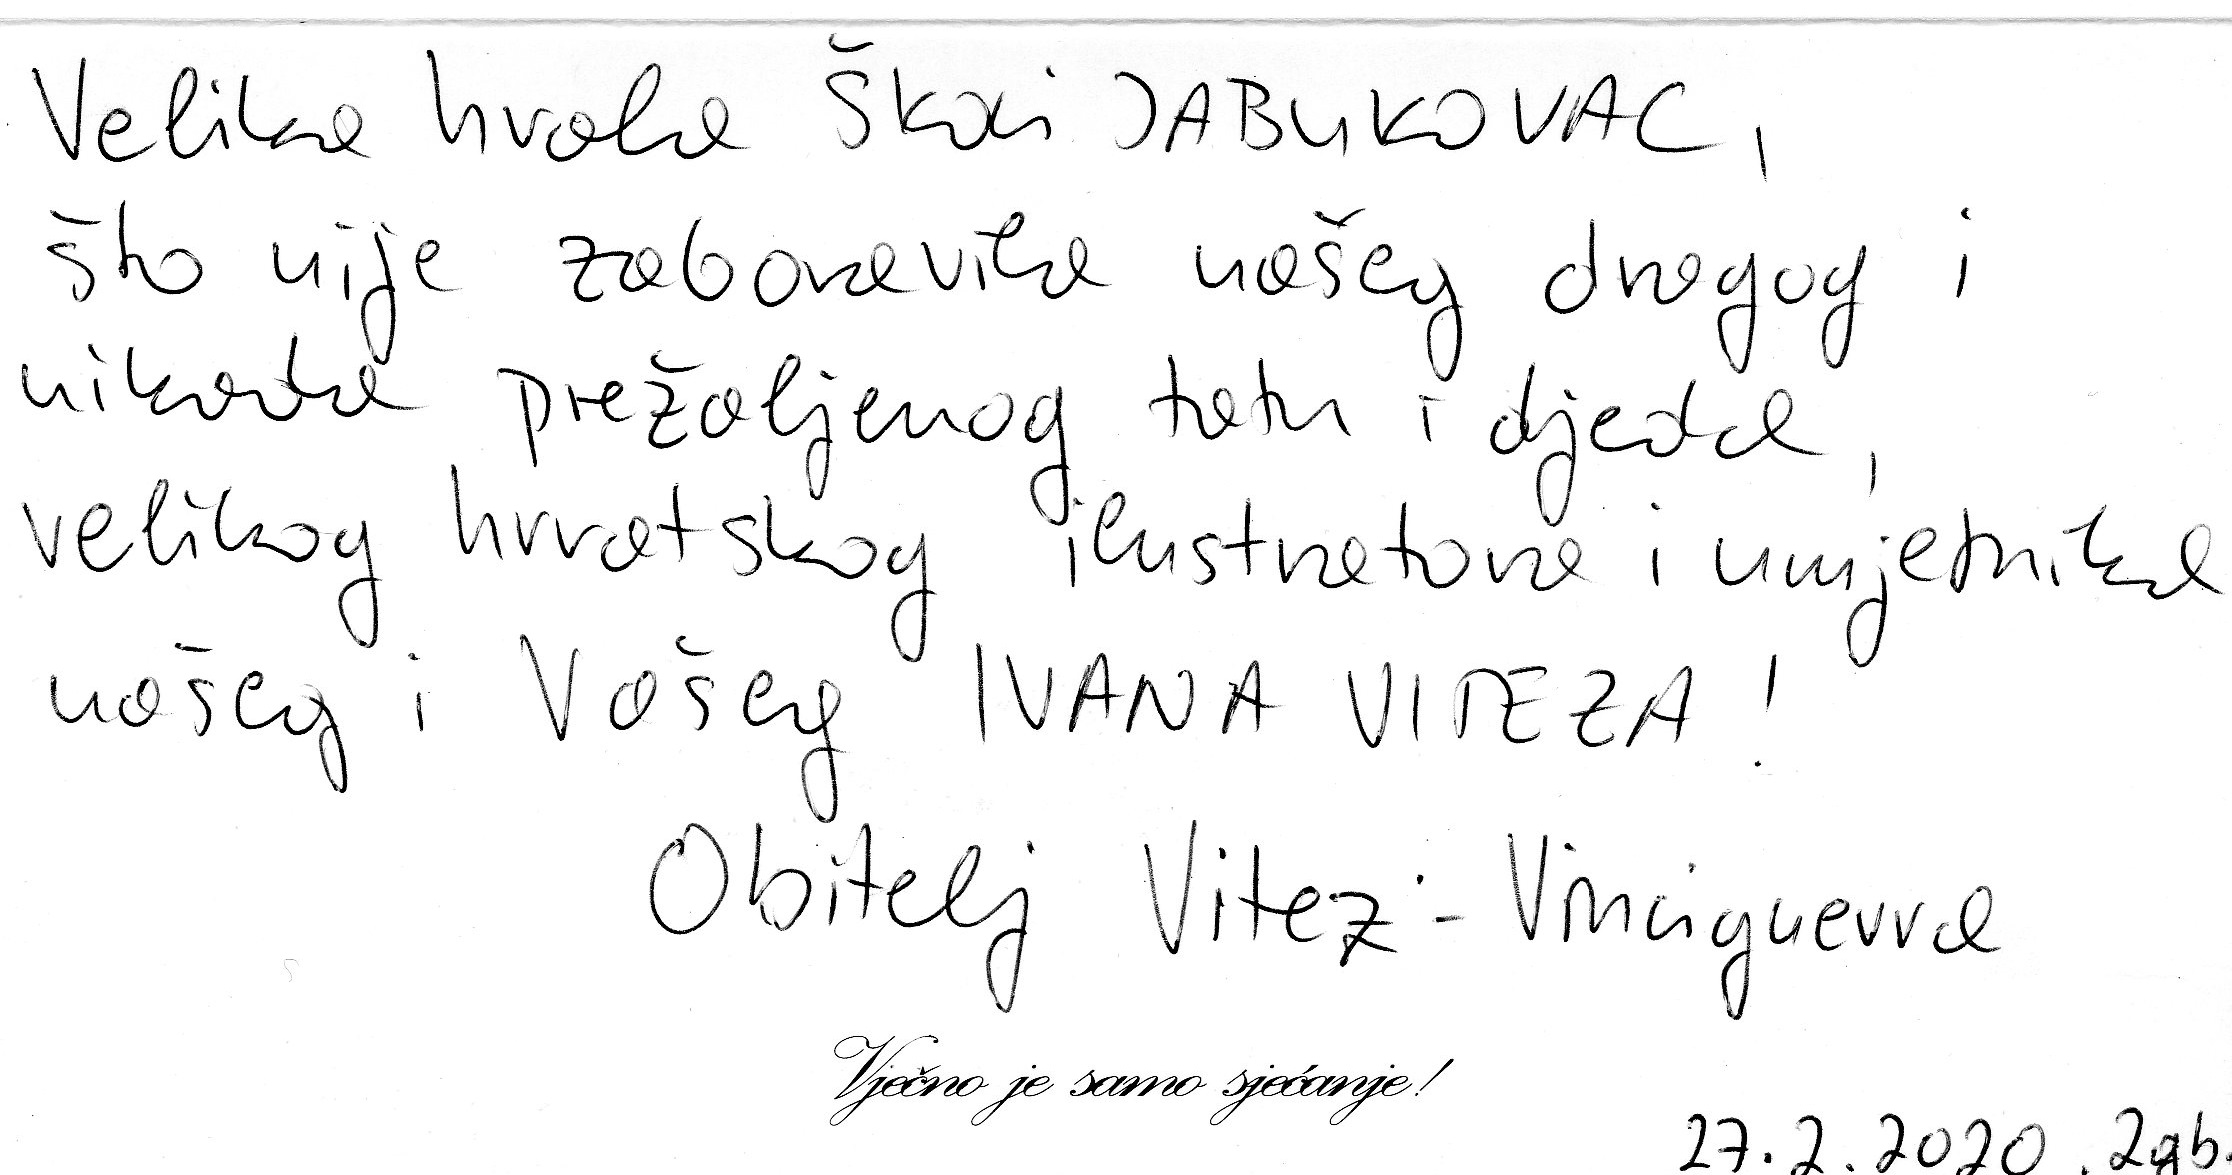 Velika hvala Školi JABUKOVAC,
što nije zaboravila našeg dragog i
nikada prežaljenog tatu i djeda,
velikog hrvatskog ilustratora i umjetnika
našeg i Vašeg IVANA VITEZA!
Obitelj Vitez - Vinciguerra
Vječno je samo sjećanje!
27.2.2020. Zgb.